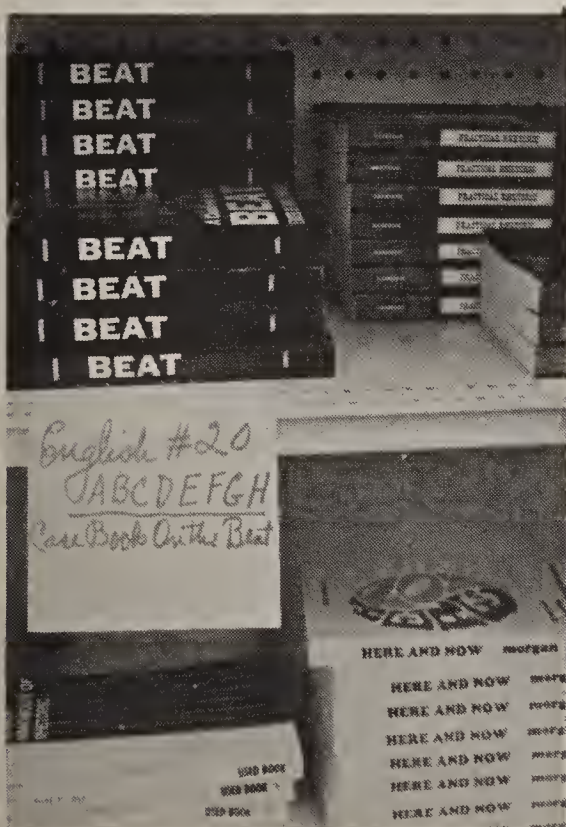 BEAT
BEAT
BEAT
BEAT
BEAT
BEAT
BEAT
BEAT
PRACTICAL RHETORIC
PRACTICAL RHETORIC
PRACTICAL RHETORIC
PRACTICAL RHETORIC
English #20
ABCDEFGH
Case Book On the Beat
HERE AND NOW morgan
HERE AND NOW morg
HERE AND NOW morg
HERE AND NOW morg
HERE AND NOW morg
HERE AND NOW morg
HERE AND NOW morg
USED BOOK
USED BOOK
USED BOOK